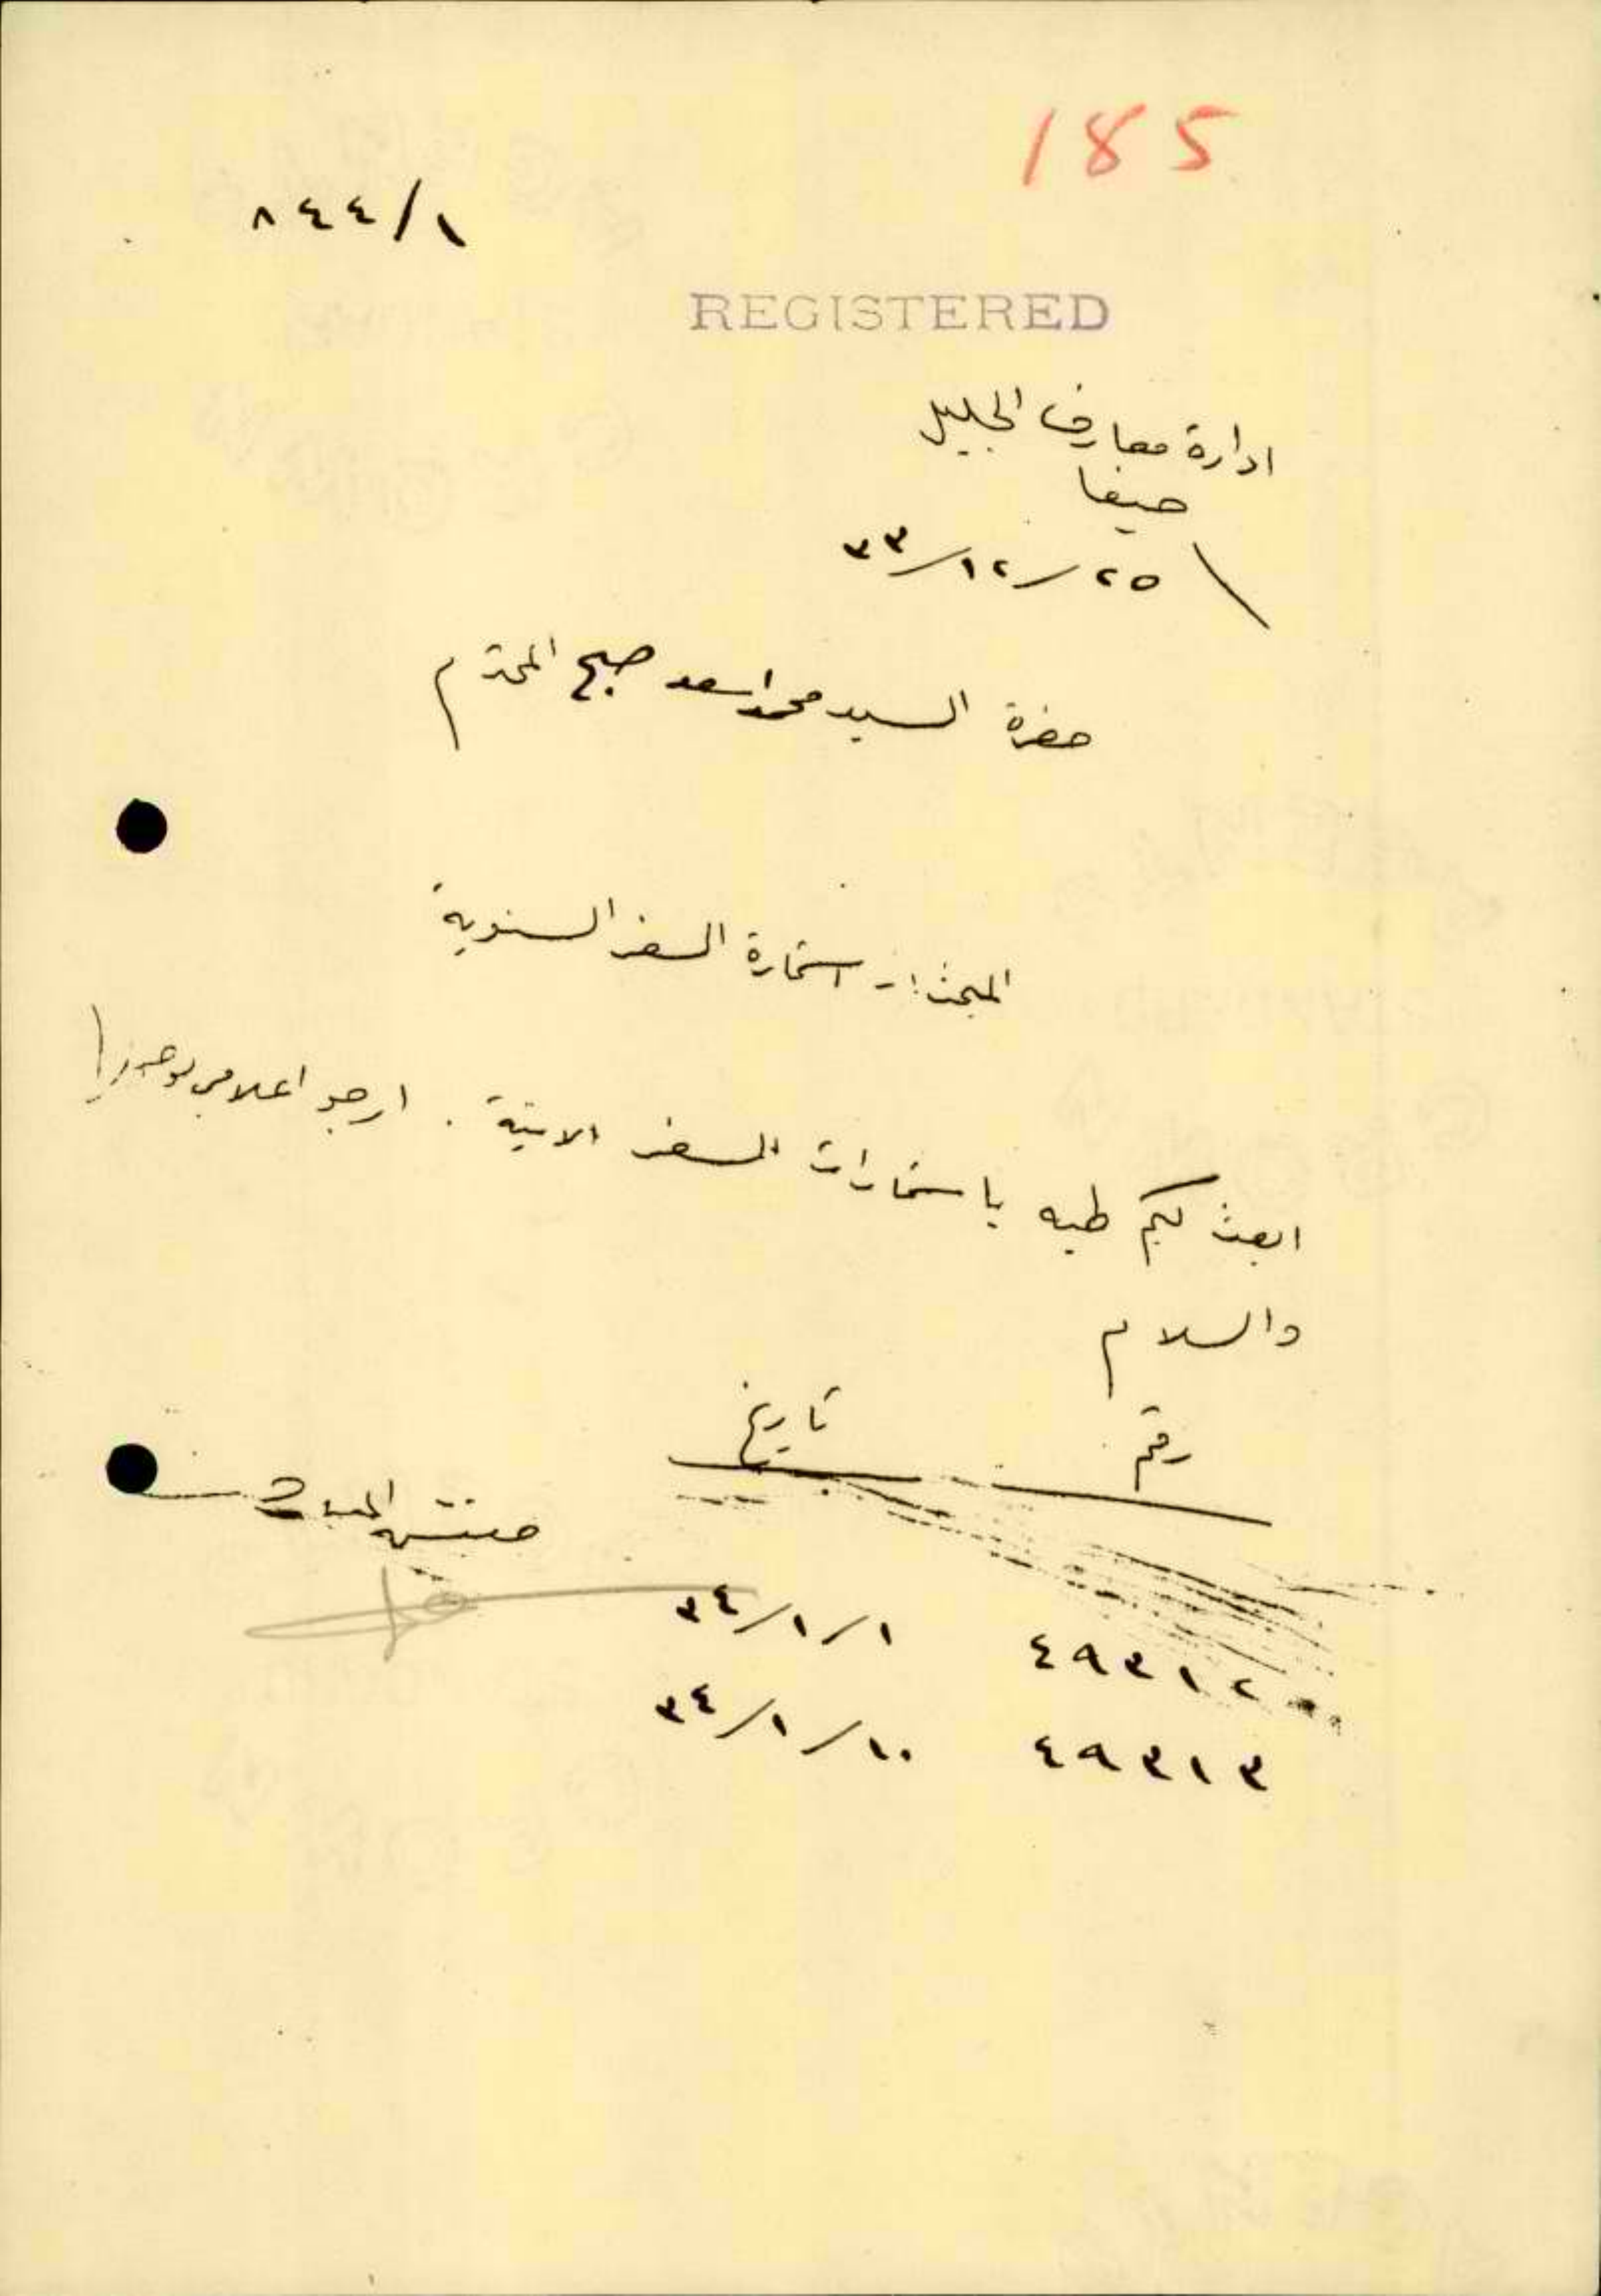 185
٨٤٤/١
REGISTERED
ادارة معارف الجليل
حيفا
٢٥/١٢/٣٣
حضرة السيد محمد اسعد صبح المحترم
المبحث :- استمارة السفر السنوية
ابعث لكم طيه باستمارات السفر الاتية . ارجو اعلامي بوصولها
والسلام
رقم تاريخ
مفتش المعارف
٤٩٣١٢ ١/١/٣٤
٤٩٣١٣ ١٠/١/٣٤